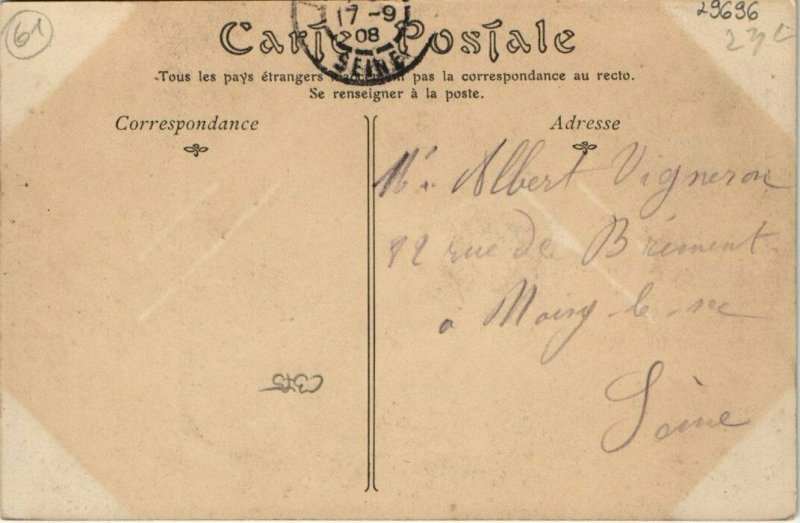 61
17 -9
08
SEINE
29696
Carte Postale
Tous les pays étrangers pas la correspondance au recto.
Se renseigner à la poste.
Correspondance
Adresse
Mr Albert Vigneron
rue de Brément
à Noisy-le-sec
Seine